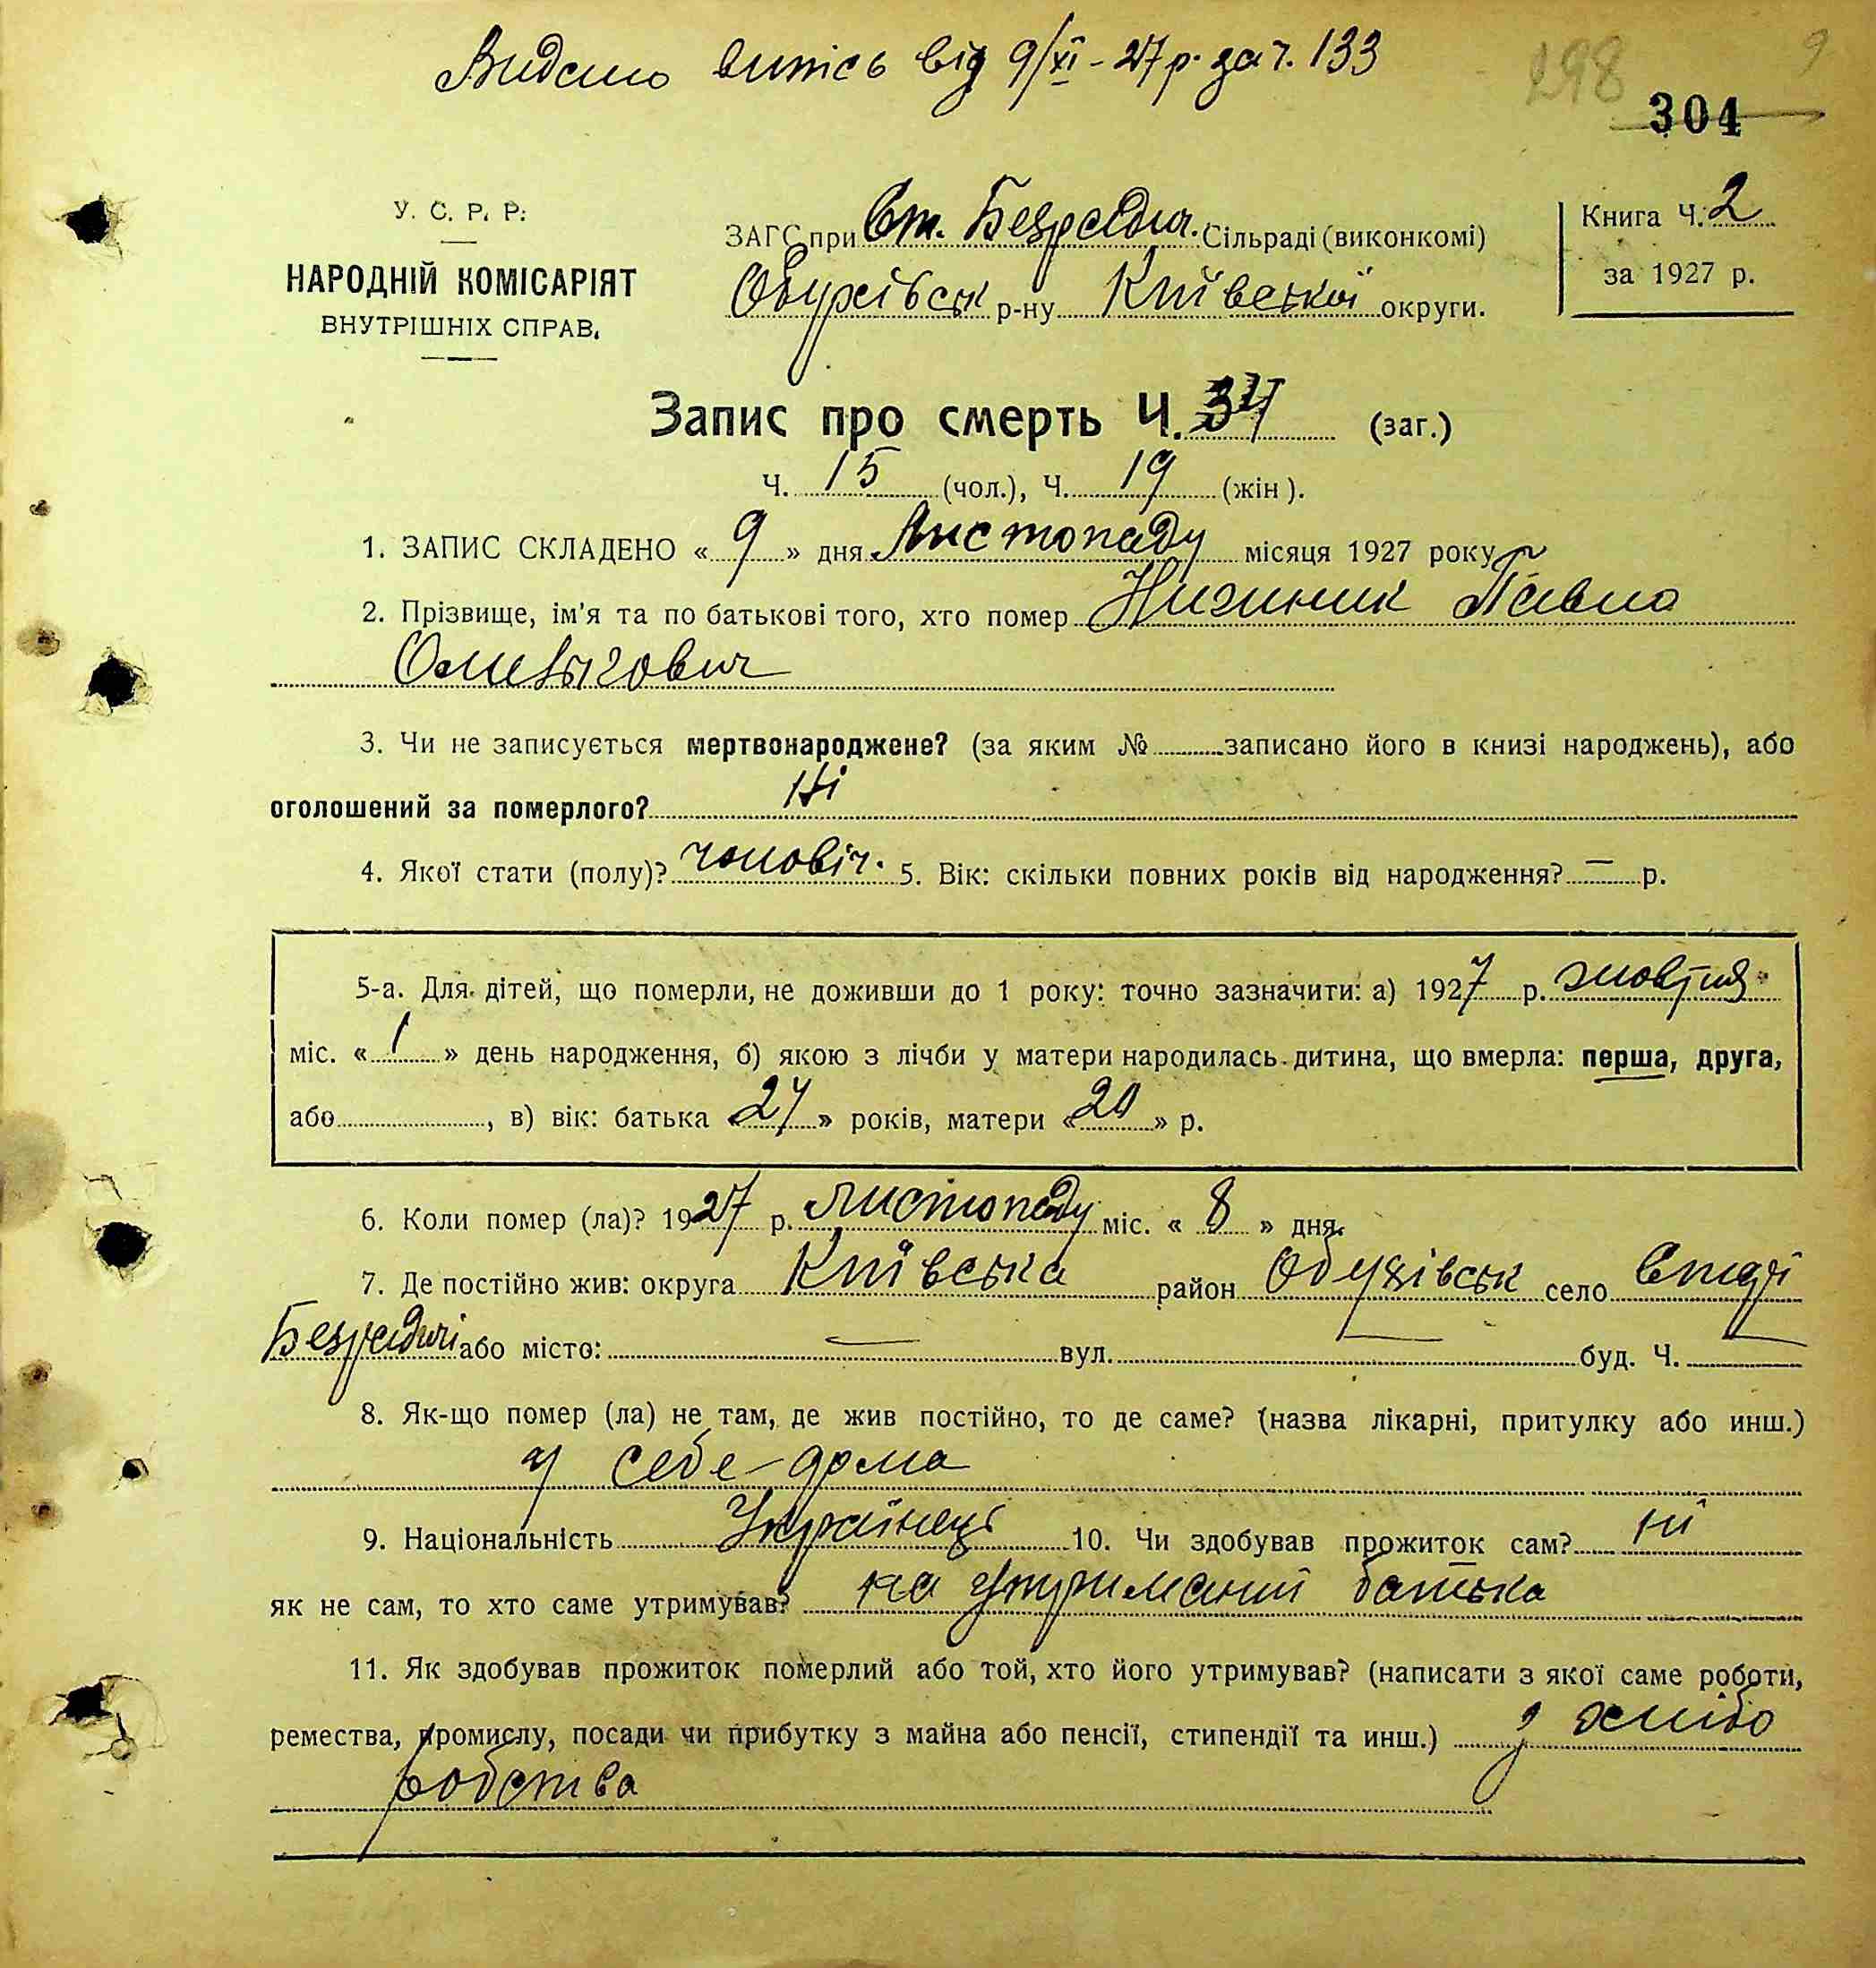 Видано випись від 9/XI - 27 р. за ч. 133
298 9
304
У. С. Р. Р.
НАРОДНІЙ КОМІСАРІЯТ
ВНУТРІШНІХ СПРАВ.
ЗАГС при Ст. Безрадич. Сільраді (виконкомі)
Обухівськ р-ну Київської округи.
Книга Ч. 2
за 1927 р.
Запис про смерть Ч. 34 (заг.)
Ч. 15 (чол.), Ч. 19 (жін).
1. ЗАПИС СКЛАДЕНО « 9 » дня Листопаду місяця 1927 року
2. Прізвище, ім'я та по батькові того, хто помер Нижиник Павло
3. Чи не записується мертвонароджене? (за яким № записано його в книзі народжень), або
оголошений за померлого? Ні
4. Якої стати (полу)? чоловіч. 5. Вік: скільки повних років від народження? — р.
5-а. Для дітей, що померли, не доживши до 1 року: точно зазначити: а) 1927 р. жовтня
міс. « 1 » день народження, б) якою з лічби у матери народилась дитина, що вмерла: перша, друга,
або , в) вік: батька « » років, матери « 20 » р.
6. Коли помер (ла)? 1927 р. Листопаду міс. « 8 » дня.
7. Де постійно жив: округа Київська район Обухівськ село Старі
Безрадичі або місто: — вул. — буд. Ч. —
8. Як-що помер (ла) не там, де жив постійно, то де саме? (назва лікарні, притулку або инш.)
у себе дома
9. Національність Українець 10. Чи здобував прожиток сам? ні
як не сам, то хто саме утримував? на утриманні батька
11. Як здобував прожиток померлий або той, хто його утримував? (написати з якої саме роботи,
ремества, промислу, посади чи прибутку з майна або пенсії, стипендії та инш.) з хлібо
робства